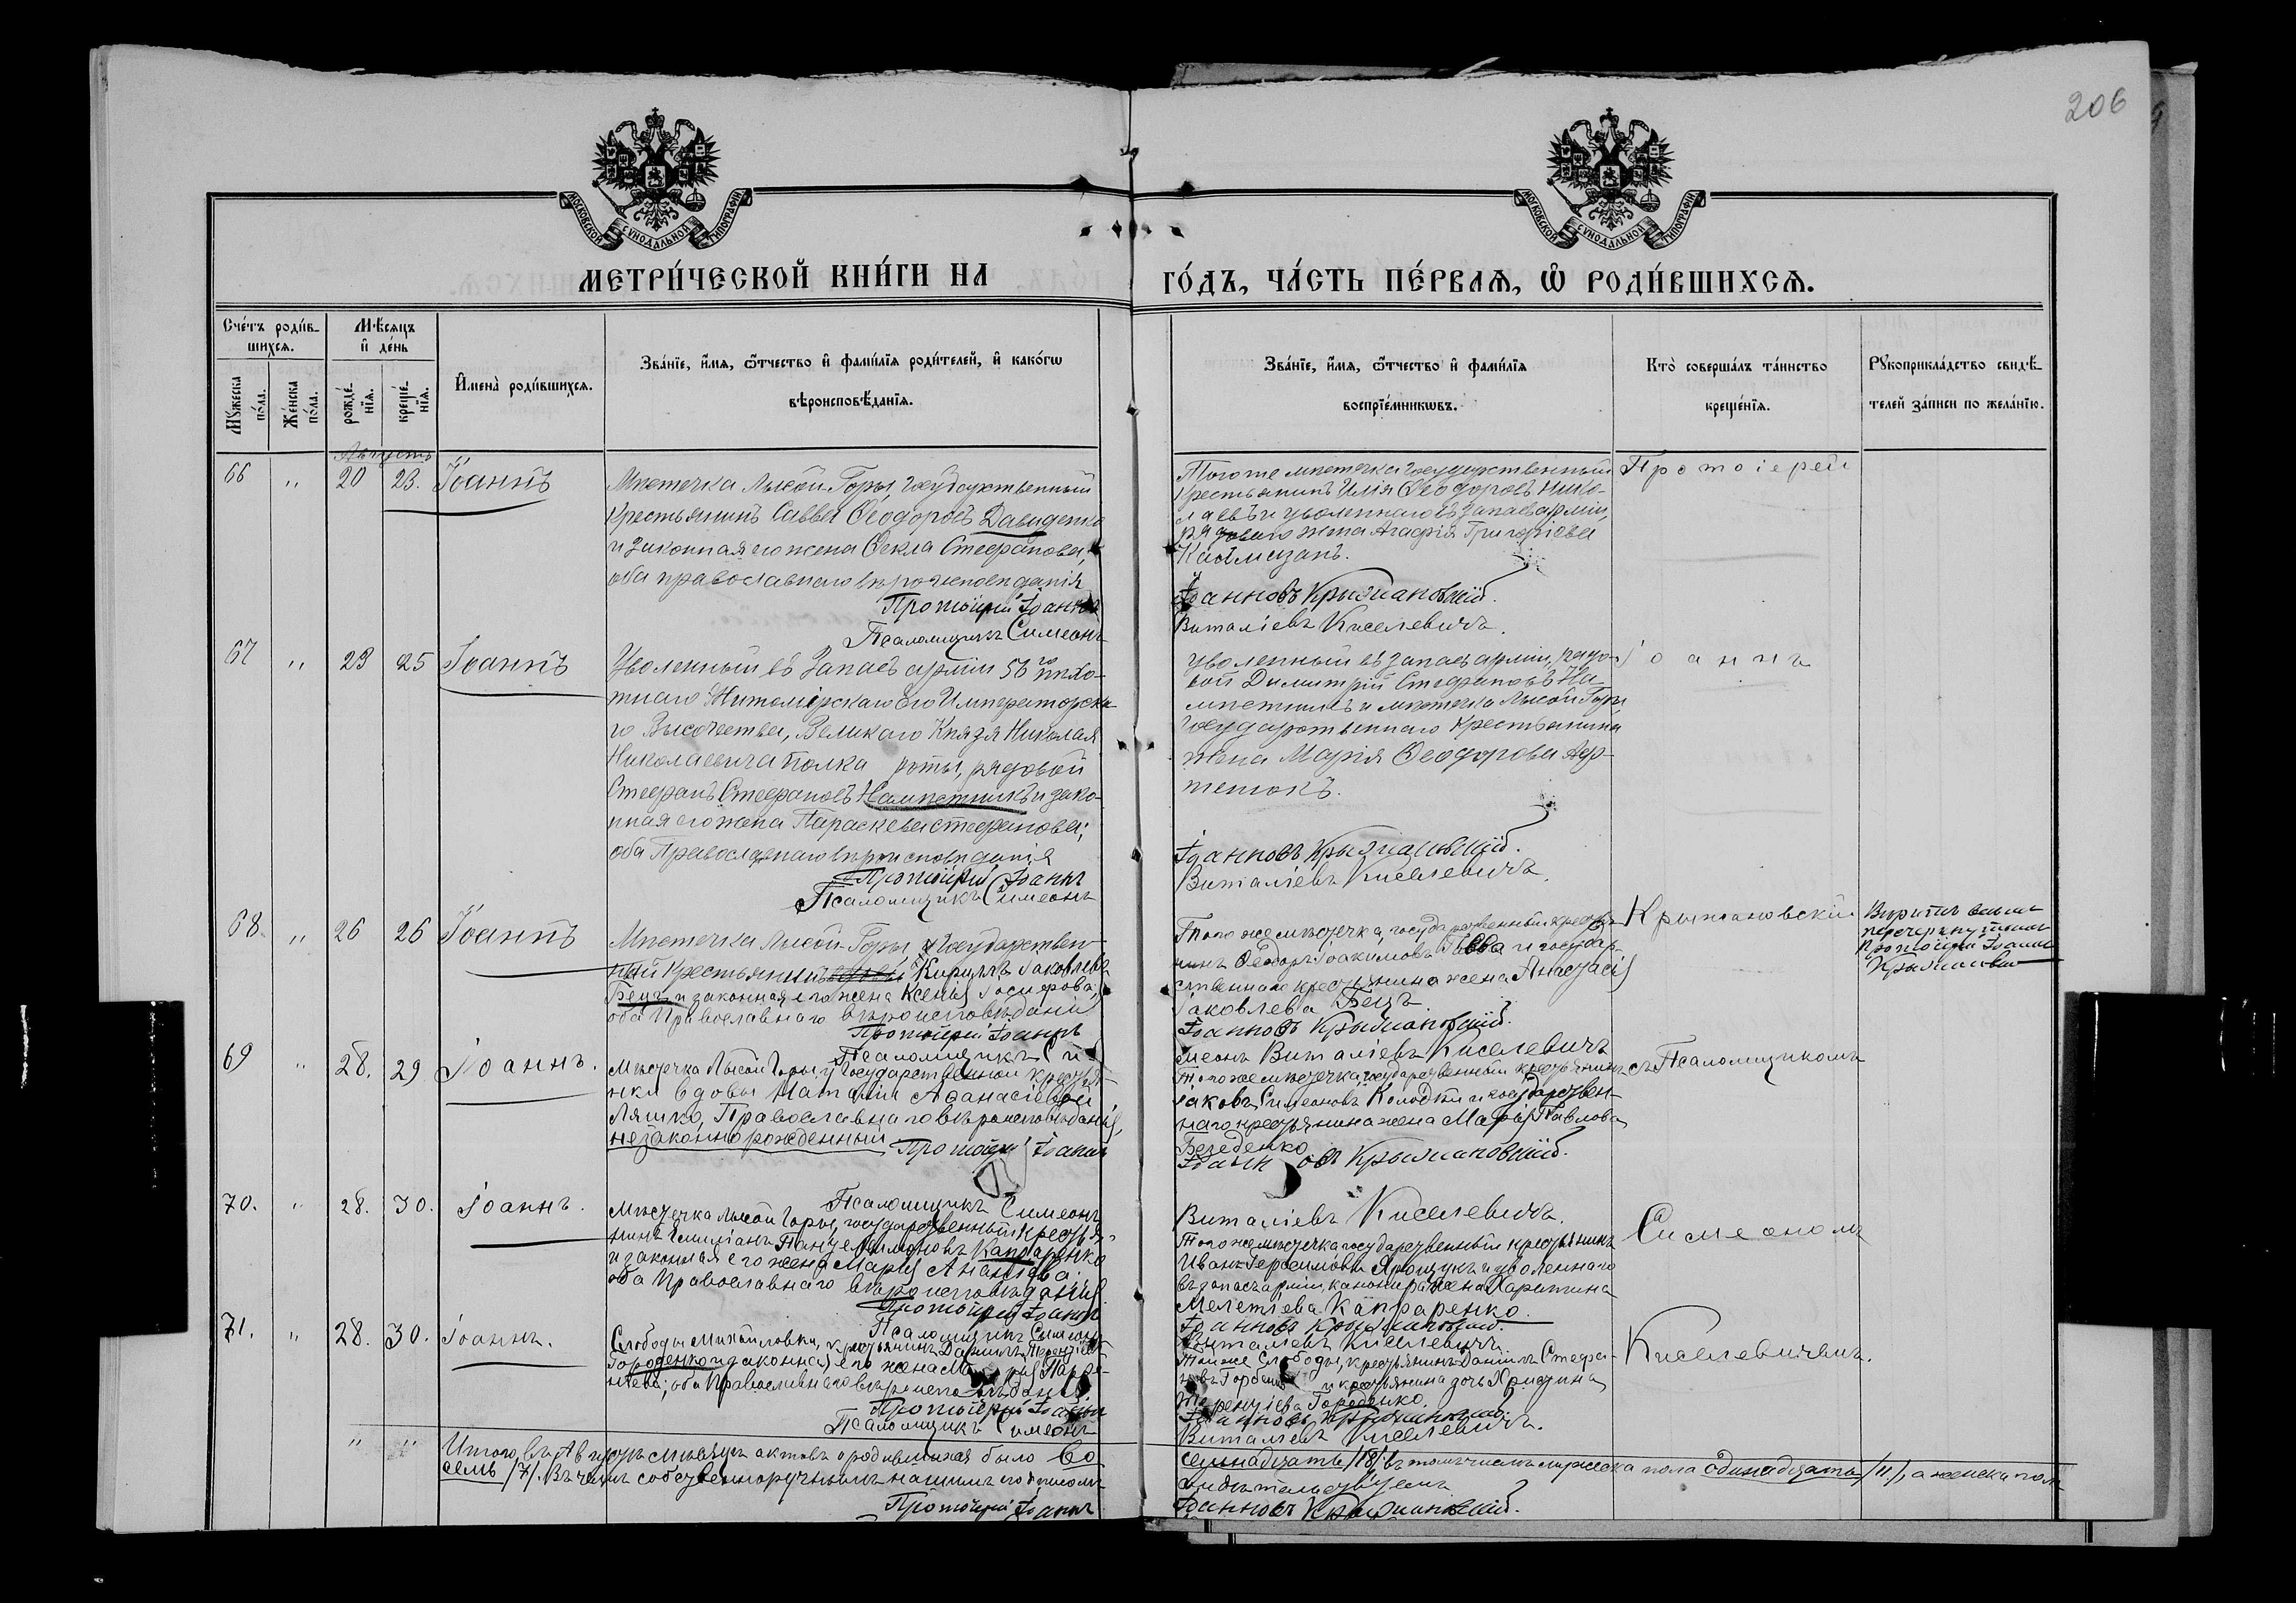 206
МОСКОВСКОЙ СУНОДАЛЬНОЙ ТИПОГРАФІИ
МОСКОВСКОЙ СУНОДАЛЬНОЙ ТИПОГРАФІИ
МЕТРИ́ЧЕСКОЙ КНИ́ГИ НА
ГО́ДЪ, ЧА́СТЬ ПЕ́РВАѦ, Ѽ РОДИ́ВШИХСѦ.
Сче́тъ роди́в-
шихсѧ.
Мѣ́сѧцъ
и҆ де́нь
Мꙋ́жеска
по́ла.
Же́нска
по́ла.
рожде́-
нїѧ.
креще́-
нїѧ.
И҆мена̀ роди́вшихсѧ.
Зва́нїе, и҆́мѧ, ѻ҆́тчество и҆ фами́лїѧ роди́телей, и҆ како́гѡ
вѣроисповѣ́данїѧ.
Зва́нїе, и҆́мѧ, ѻ҆́тчество и҆ фами́лїѧ
воспрїе́мникѡвъ.
Кто̀ соверша́лъ та́инство
креще́нїѧ.
Рꙋкоприкла́дство свидѣ́-
телей за́писи по жела́нїю.
Августъ
66 " 20 23. Іоаннъ
Мѣстечка Лысой-Горы, государственный
крестьянинъ Савва Ѳеодоровъ Давиденко
и законная его жена Ѳекла Стефанова,
оба православнаго вѣроисповѣданія
Протоіерей Іоаннъ
Псаломщикъ Симеонъ
Того же мѣстечка государственный
крестьянинъ Илія Ѳеодоровъ Нико-
лаевъ и уволеннаго въ запасъ арміи,
рядового жена Агафія Григоріева
Іоанновъ Крыжановскій.
Виталіевъ Киселевичъ.
Протоіерей
67 " 23 25 Іоаннъ
Уволенный въ запасъ арміи 56го пѣхо-
тнаго Житомірскаго Его Императорска-
го Высочества, Великаго Князя Николая
Николаевича полка роты, рядовой
Стефанъ Стефановъ и зако-
нная его жена Параскева Стефанова;
оба Православнаго вѣроисповѣданія
Протоіерей Іоаннъ
Псаломщикъ Симеонъ
Уволенный въ запасъ арміи, рядо-
вой Димитрій Стефановъ
и мѣстечка Лысой Горы
государственнаго крестьянина
жена Марія Ѳеодорова
Іоанновъ Крыжановскій.
Виталіевъ Киселевичъ.
Іоаннъ
68. " 26 26 Іоаннъ
Мѣстечка Лысой-Горы, государствен-
ный крестьянинъ Кириллъ Іаковлевъ
Бецъ и законная его жена Ксенія Іосифова,
оба Православнаго вѣроисповѣданія
Протоіерей Іоаннъ
Псаломщикъ Си
Того же мѣстечка, государственный крестья-
нинъ Ѳеодоръ Іоакимовъ и государ-
ственнаго крестьянина жена Анастасія
Іаковлева Бецъ
Іоанновъ Крыжановскій.
меонъ Виталіевъ Киселевичъ
Крыжановскій
Протоіерей Іоаннъ
69 " 28. 29 Іоаннъ.
Мѣстечка Лысой Горы, государственной крестья-
нки вдовы Наталіи Аѳанасіевой
Ляшко, Православнаго вѣроисповѣданія,
незаконнорожденный
Протоіерей Іоаннъ
Псаломщикъ Симеонъ
Того же мѣстечка, государственный крестьянинъ
Іаковъ Симеоновъ Колодій и государствен-
наго крестьянина жена Марія Павлова
Іоанновъ Крыжановскій.
Виталіевъ Киселевичъ.
съ Псаломщикомъ
70. " 28. 30. Іоаннъ.
Мѣстечка Лысой Горы, государственный крестья-
нинъ Емиліанъ Пантелеимоновъ Капфаренко
и законная его жена Марія Ананіева;
оба Православнаго вѣроисповѣданія
Протоіерей Іоаннъ
Псаломщикъ Симеонъ
Того же мѣстечка государственный крестьянинъ
Иванъ Герасимовъ и уволеннаго
въ запасъ арміи, канонира жена Харитина
Мелетіева Капфаренко.
Іоанновъ Крыжановскій.
Виталіевъ Киселевичъ.
Симеономъ
71. " 28. 30. Іоаннъ.
Слободы Михайловки, крестьянинъ Даніилъ Терентіевъ
Городенко и законная его жена Марія Парѳе-
ніева; оба Православнаго вѣроисповѣданія.
Протоіерей Іоаннъ
Псаломщикъ Симеонъ
Той же Слободы, крестьянинъ Даніилъ Стефа-
новъ и крестьянина дочь Христина
Терентіева Городенко.
Іоанновъ Крыжановскій.
Виталіевъ Киселевичъ.
Киселевичемъ.
" " Итого, въ Августѣ мѣсяцѣ актовъ о родившихся было во
семнадцать /18/ въ томъ числѣ мужеска пола одинадцать /11/, а женска пола
семь /7/. Въ чемъ собственноручнымъ нашимъ подписомъ
свидѣтельствуемъ
Протоіерей Іоаннъ
Іоанновъ Крыжановскій.